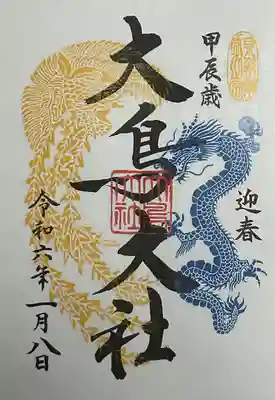 甲辰歳
迎春
大鳥大社
令和六年一月八日